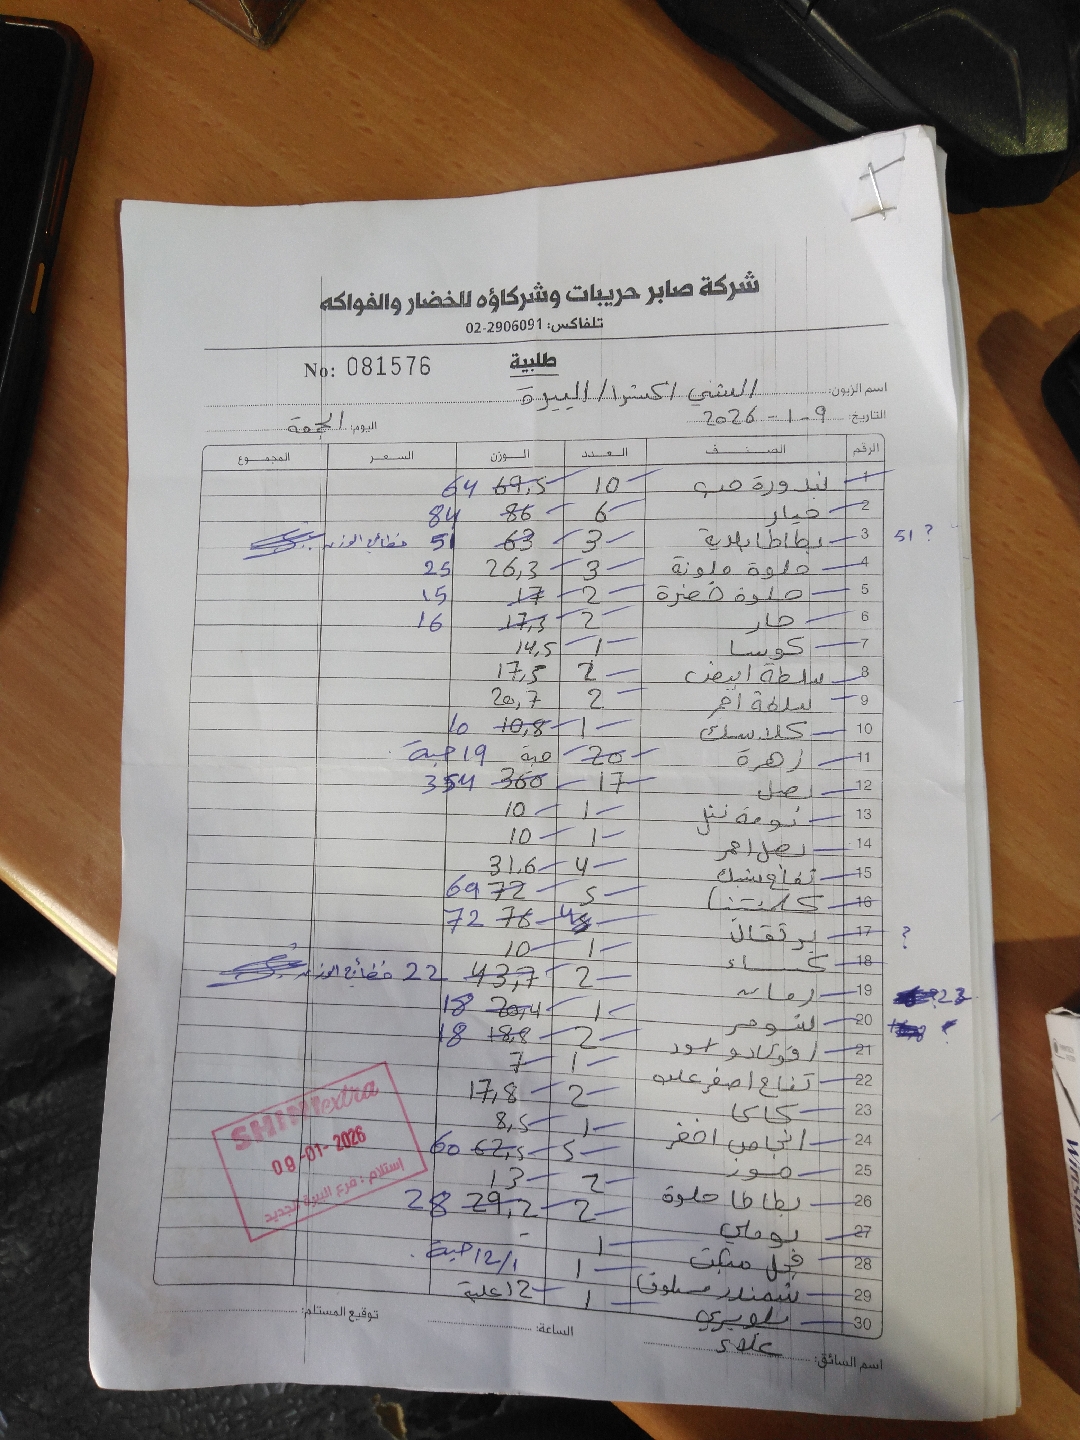 شركة صابر حريبات وشركاؤه للخضار والفواكه
تلفاكس: 02-2906091
No: 081576 طلبية
اسم الزبون: الشني اكسترا / البيرة
التاريخ: 9-1-2026 اليوم: الجمعة
الرقم الصنف العدد الوزن السعر المجموع
1 بندورة حب 10 67,5 64
2 خيار 6 86 84
3 بطاطا بلدية 3 63 51 خطأ في الوزن 51 ?
4 حلوة ملونة 3 26,3 25
5 حلوة خضرة 2 17 15
6 حار 2 17,3 16
7 كوسا 1 14,5
8 سلطة ابيض 2 17,5
9 سلطة احمر 2 20,7
10 كلاسك 1 10,8 10
11 زهرة 20 حبة 19 حبة
12 بصل 17 360 354
13 ثومة نتل 1 10
14 بصل احمر 1 10
15 تفاح 4 31.6
16 كلمنتينا 5 72 69
17 برتقال 4 76 72 ?
18 1 10
19 رمان 2 43,7 22 خطأ في الوزن ? 23
20 1 20,4 18 ?
21 افوكادو اسود 2 18,8 18
22 تفاح اصفر 1 7
23 كاكا 2 17,8
24 انجاص اخضر 1 8,5
25 موز 5 62,5 60
26 بطاطا حلوة 2 13
27 بوملي 2 29,2 28
28 فجل 1 -
29 شمندر مسلوق 1 12/1 حبة
30 بلوبيري 1 12 علبة
اسم السائق: علاء الساعة: توقيع المستلم:
SHINI extra
09-01-2026
استلام: فرع البيرة الجديد